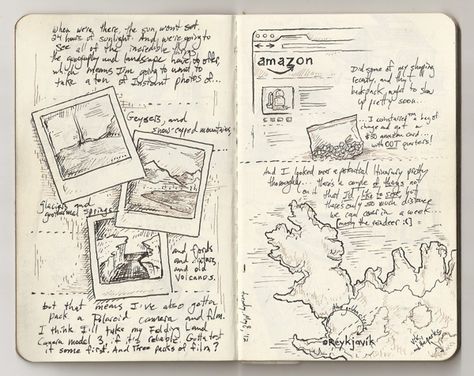 when we're there, the sun won't set.
24 hours of sunlight. And we're going to
see all of the incredible things
the geography and landscape have to offer,
which means I'm going to want to
take a ton of instant photos of...
Geysers, and
snow-capped mountains,
glaciers and
geothermal springs
and fjords
and
and old
volcanos.
but that means I've also gotta
pack a Polaroid camera and film.
I think I'll take my Folding Land
Camera model 3, if it's reliable. Gotta test
it some first. And three packs of film?
amazon
Did some of my shopping
recently, and the
backpack ought to show
up pretty soon..
... I contributed my bag of
change and got
$30 amazon card...
with OUT quarters!
And I looked over a potential itinerary pretty
thoroughly... there's a couple of things not
on it that I'd like to see, but
there's only so much distance
we can cover in a week
Reykjavik